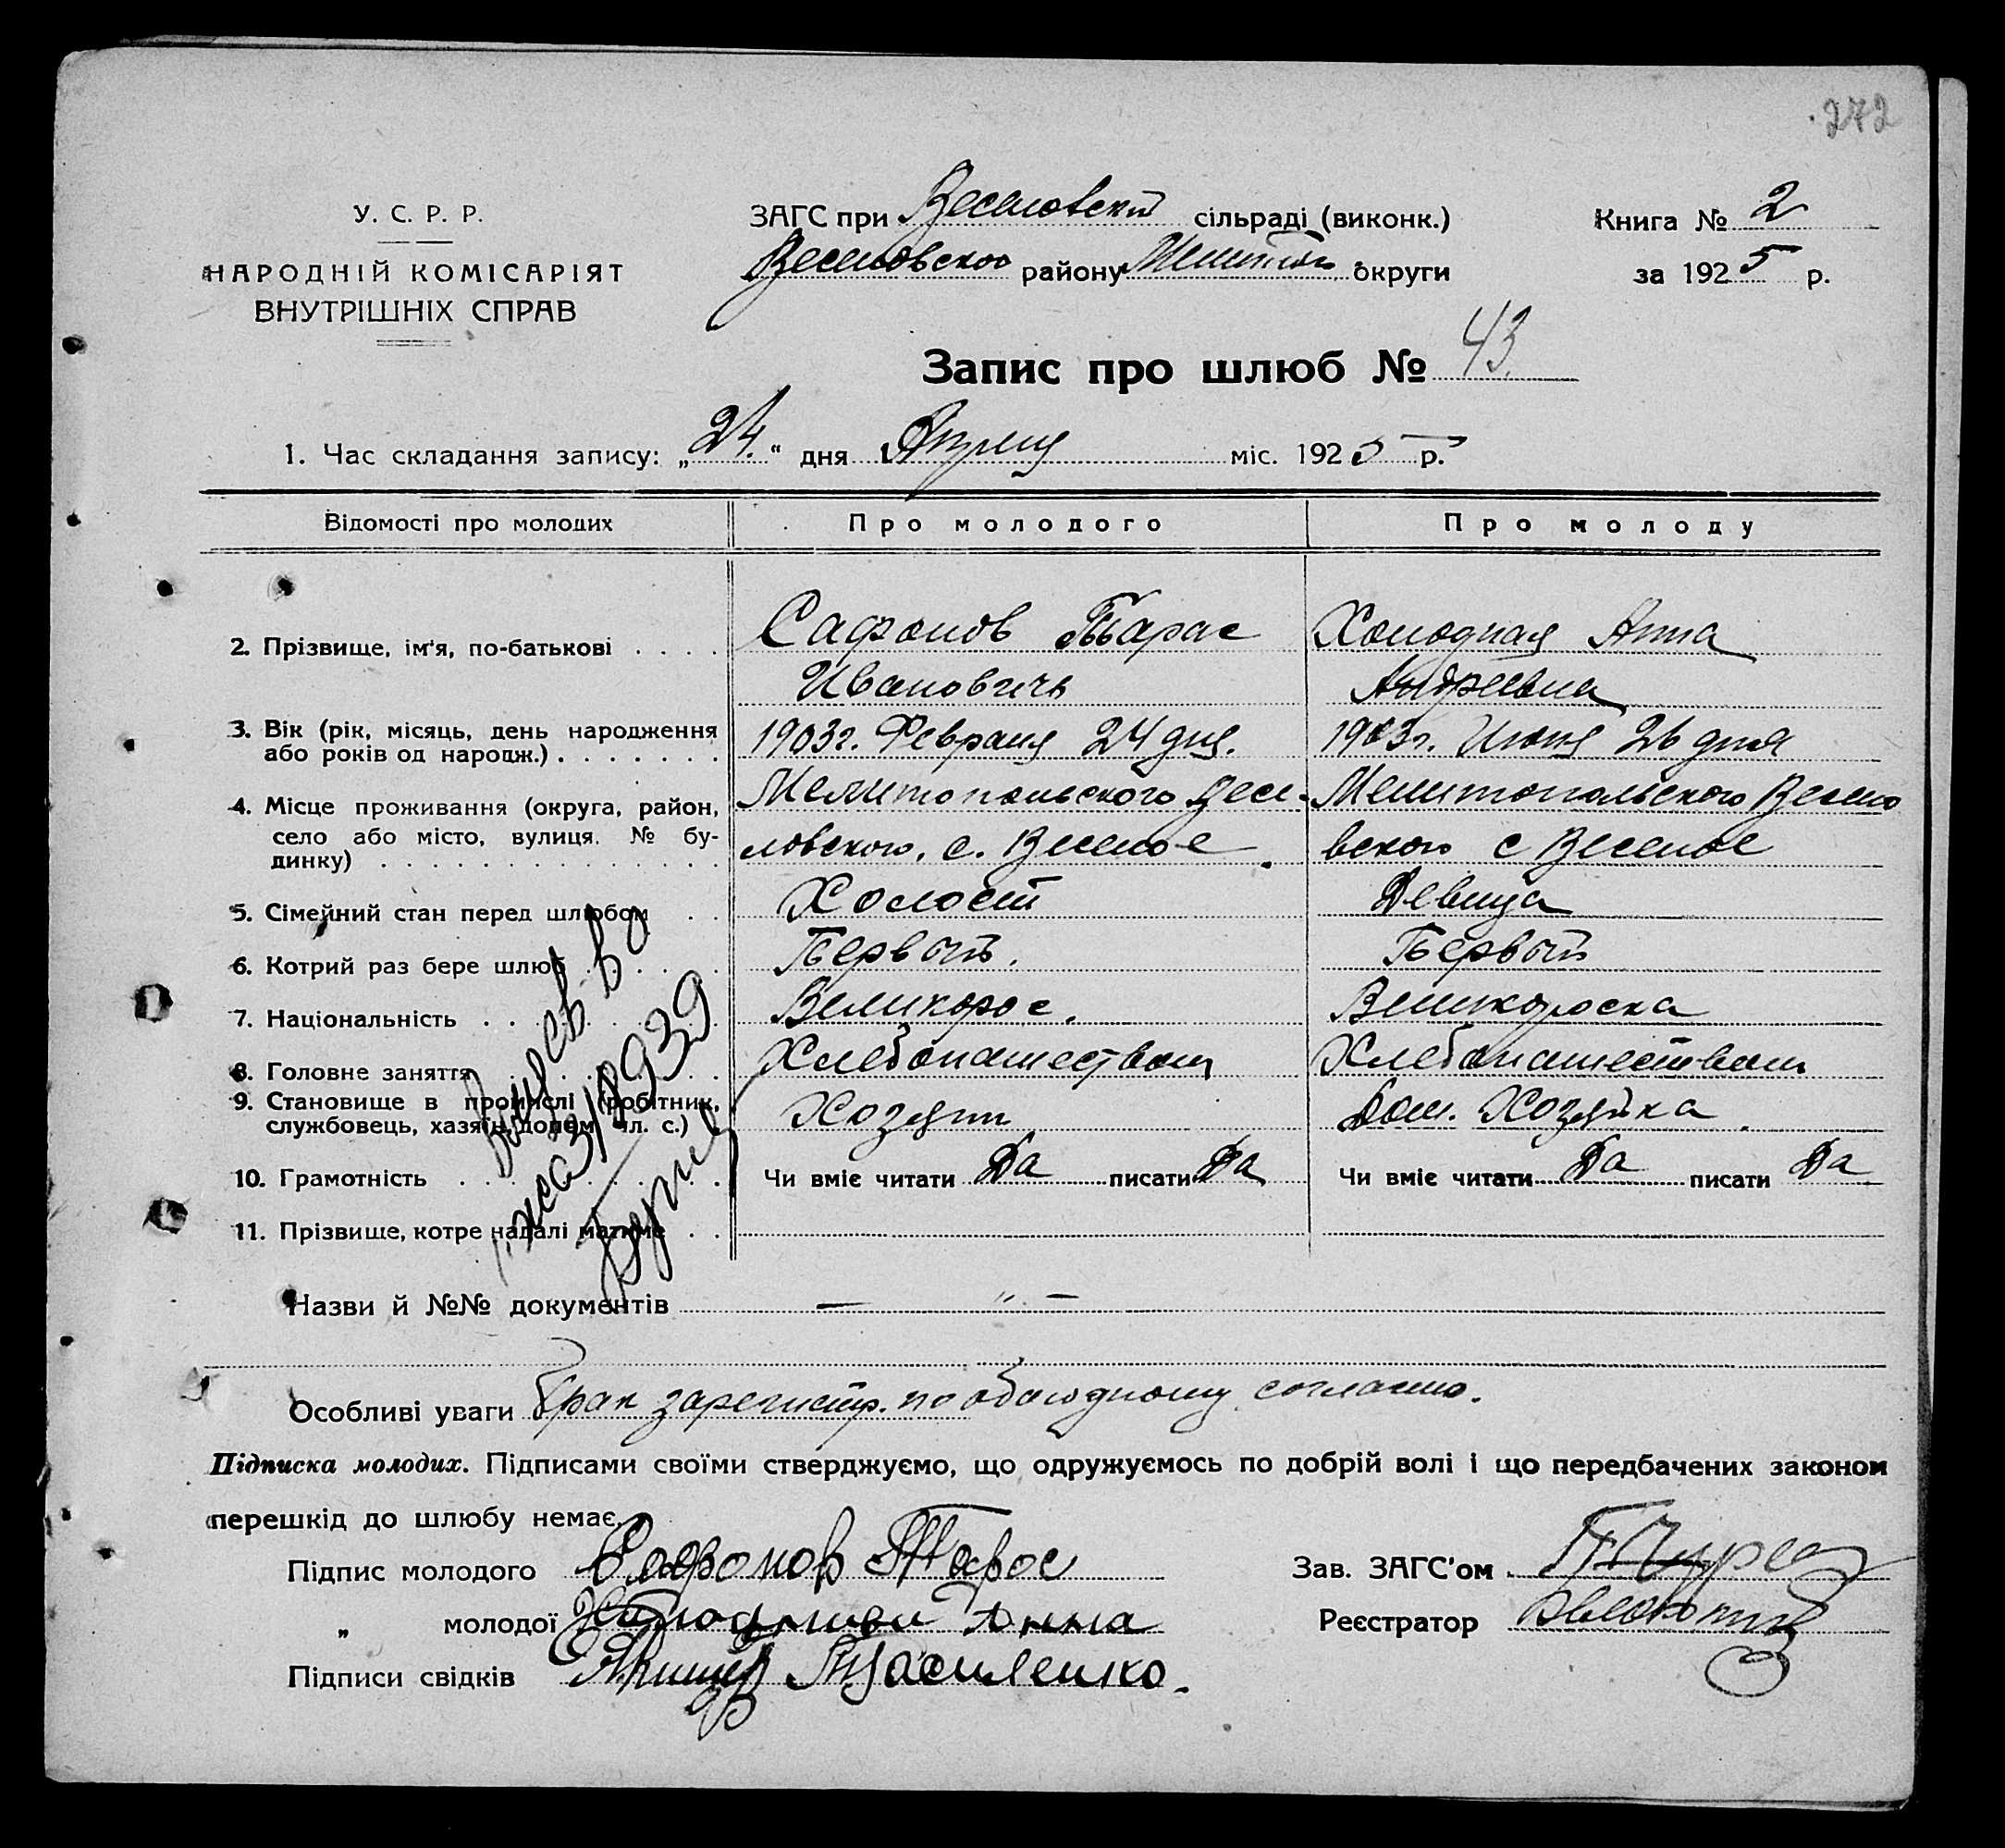 272
У. С. Р. Р.
НАРОДНІЙ КОМІСАРІЯТ
ВНУТРІШНІХ СПРАВ
ЗАГС при Веселовской сільраді (виконк.)
Веселовского району Мелитоп. округи
Книга № 2
за 1925 р.
Запис про шлюб № 43
1. Час складання запису: „24.“ дня Апреля міс. 1925 р.
Відомості про молодих Про молодого Про молоду
2. Прізвище, ім'я, по-батькові . . . . Сафонов Тарас Холодная Анна
Ивановичъ Андреевна
3. Вік (рік, місяць, день народження або років од народж.) . . . . . . . 1903г. Февраля 24 дня. 1903г. Июня 26 дня
4. Місце проживання (округа, район, Мелитопольского Весе- Мелитопольского Весело
село або місто, вулиця. № будинку) . . . ловского. с. Веселое вского с Веселое
5. Сімейний стан перед шлюбом . . Холост Девица
6. Котрий раз бере шлюб . . . . Первый. Первый
7. Національність . . . . Великорос. Великороска
8. Головне заняття . . . . Хлебопашеством Хлебопашеством
9. Становище в промислі (робітник, службовець, хазяїн, допом. чл. с.) Хозяин Дом. Хозяйка.
10. Грамотність . . . . Чи вміє читати Да писати Да Чи вміє читати Да писати Да
11. Прізвище, котре надалі матиме . .
1939
Назви й №№ документів — „ —
Особливі уваги Брак зарегистр. по обоюдному согласию.
Підписка молодих. Підписами своїми стверджуємо, що одружуємось по добрій волі і що передбачених законом
перешкід до шлюбу немає.
Підпис молодого Сафонов Тарас Зав. ЗАГС'ом
„ молодої Анна Реєстратор
Підписи свідків Василенко.